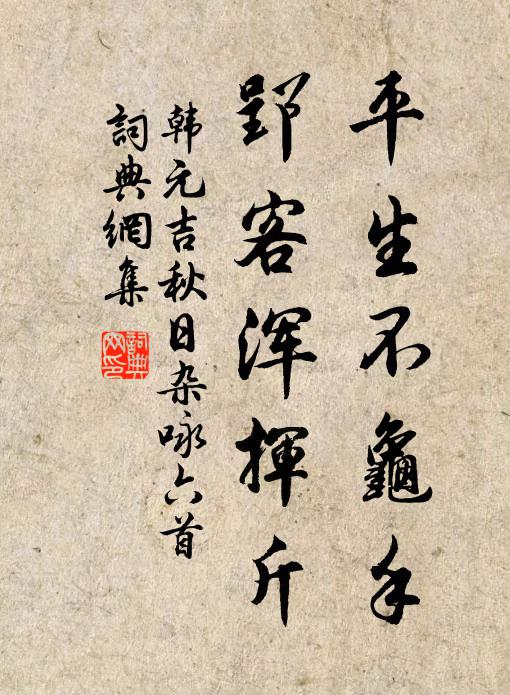 平生不龜手
郢客浑揮斤
韩元吉秋日杂咏六首
詞典網集
詞典網印